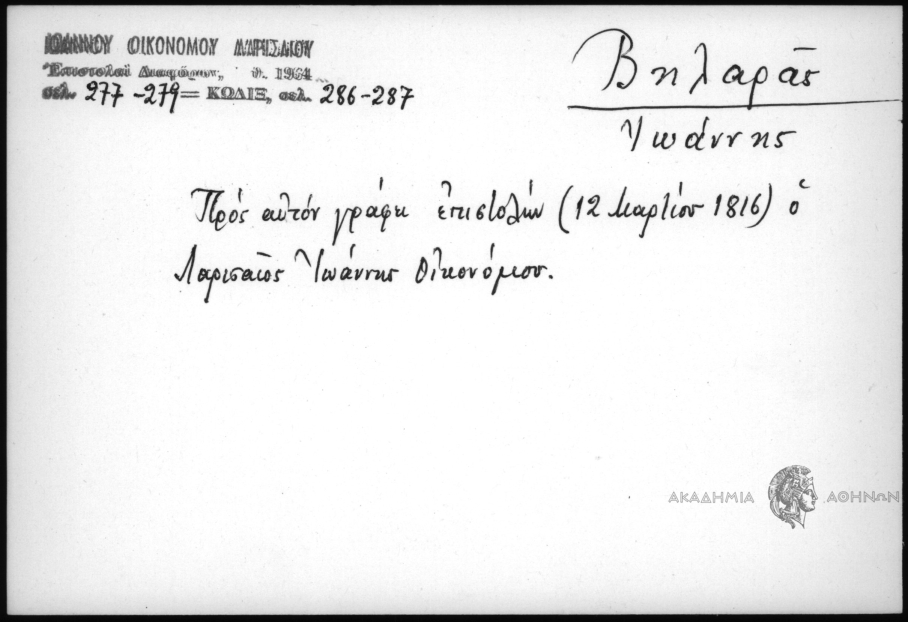 ΙΩΑΝΝΟΥ ΟΙΚΟΝΟΜΟΥ ΛΑΡΙΣΑΙΟΥ
Ἐπιστολαὶ Διαφόρων, θ. 1964
σελ. 277-279 = ΚΩΔΙΞ, σελ. 286-287
Βηλαρᾶς
Ἰωάννης
Πρός αὐτόν γράφει ἐπιστολήν (12 Μαρτίου 1816) ὁ
Λαρισαῖος Ἰωάννης Οἰκονόμου.
ΑΚΑΔΗΜΙΑ ΑΘΗΝΩΝ